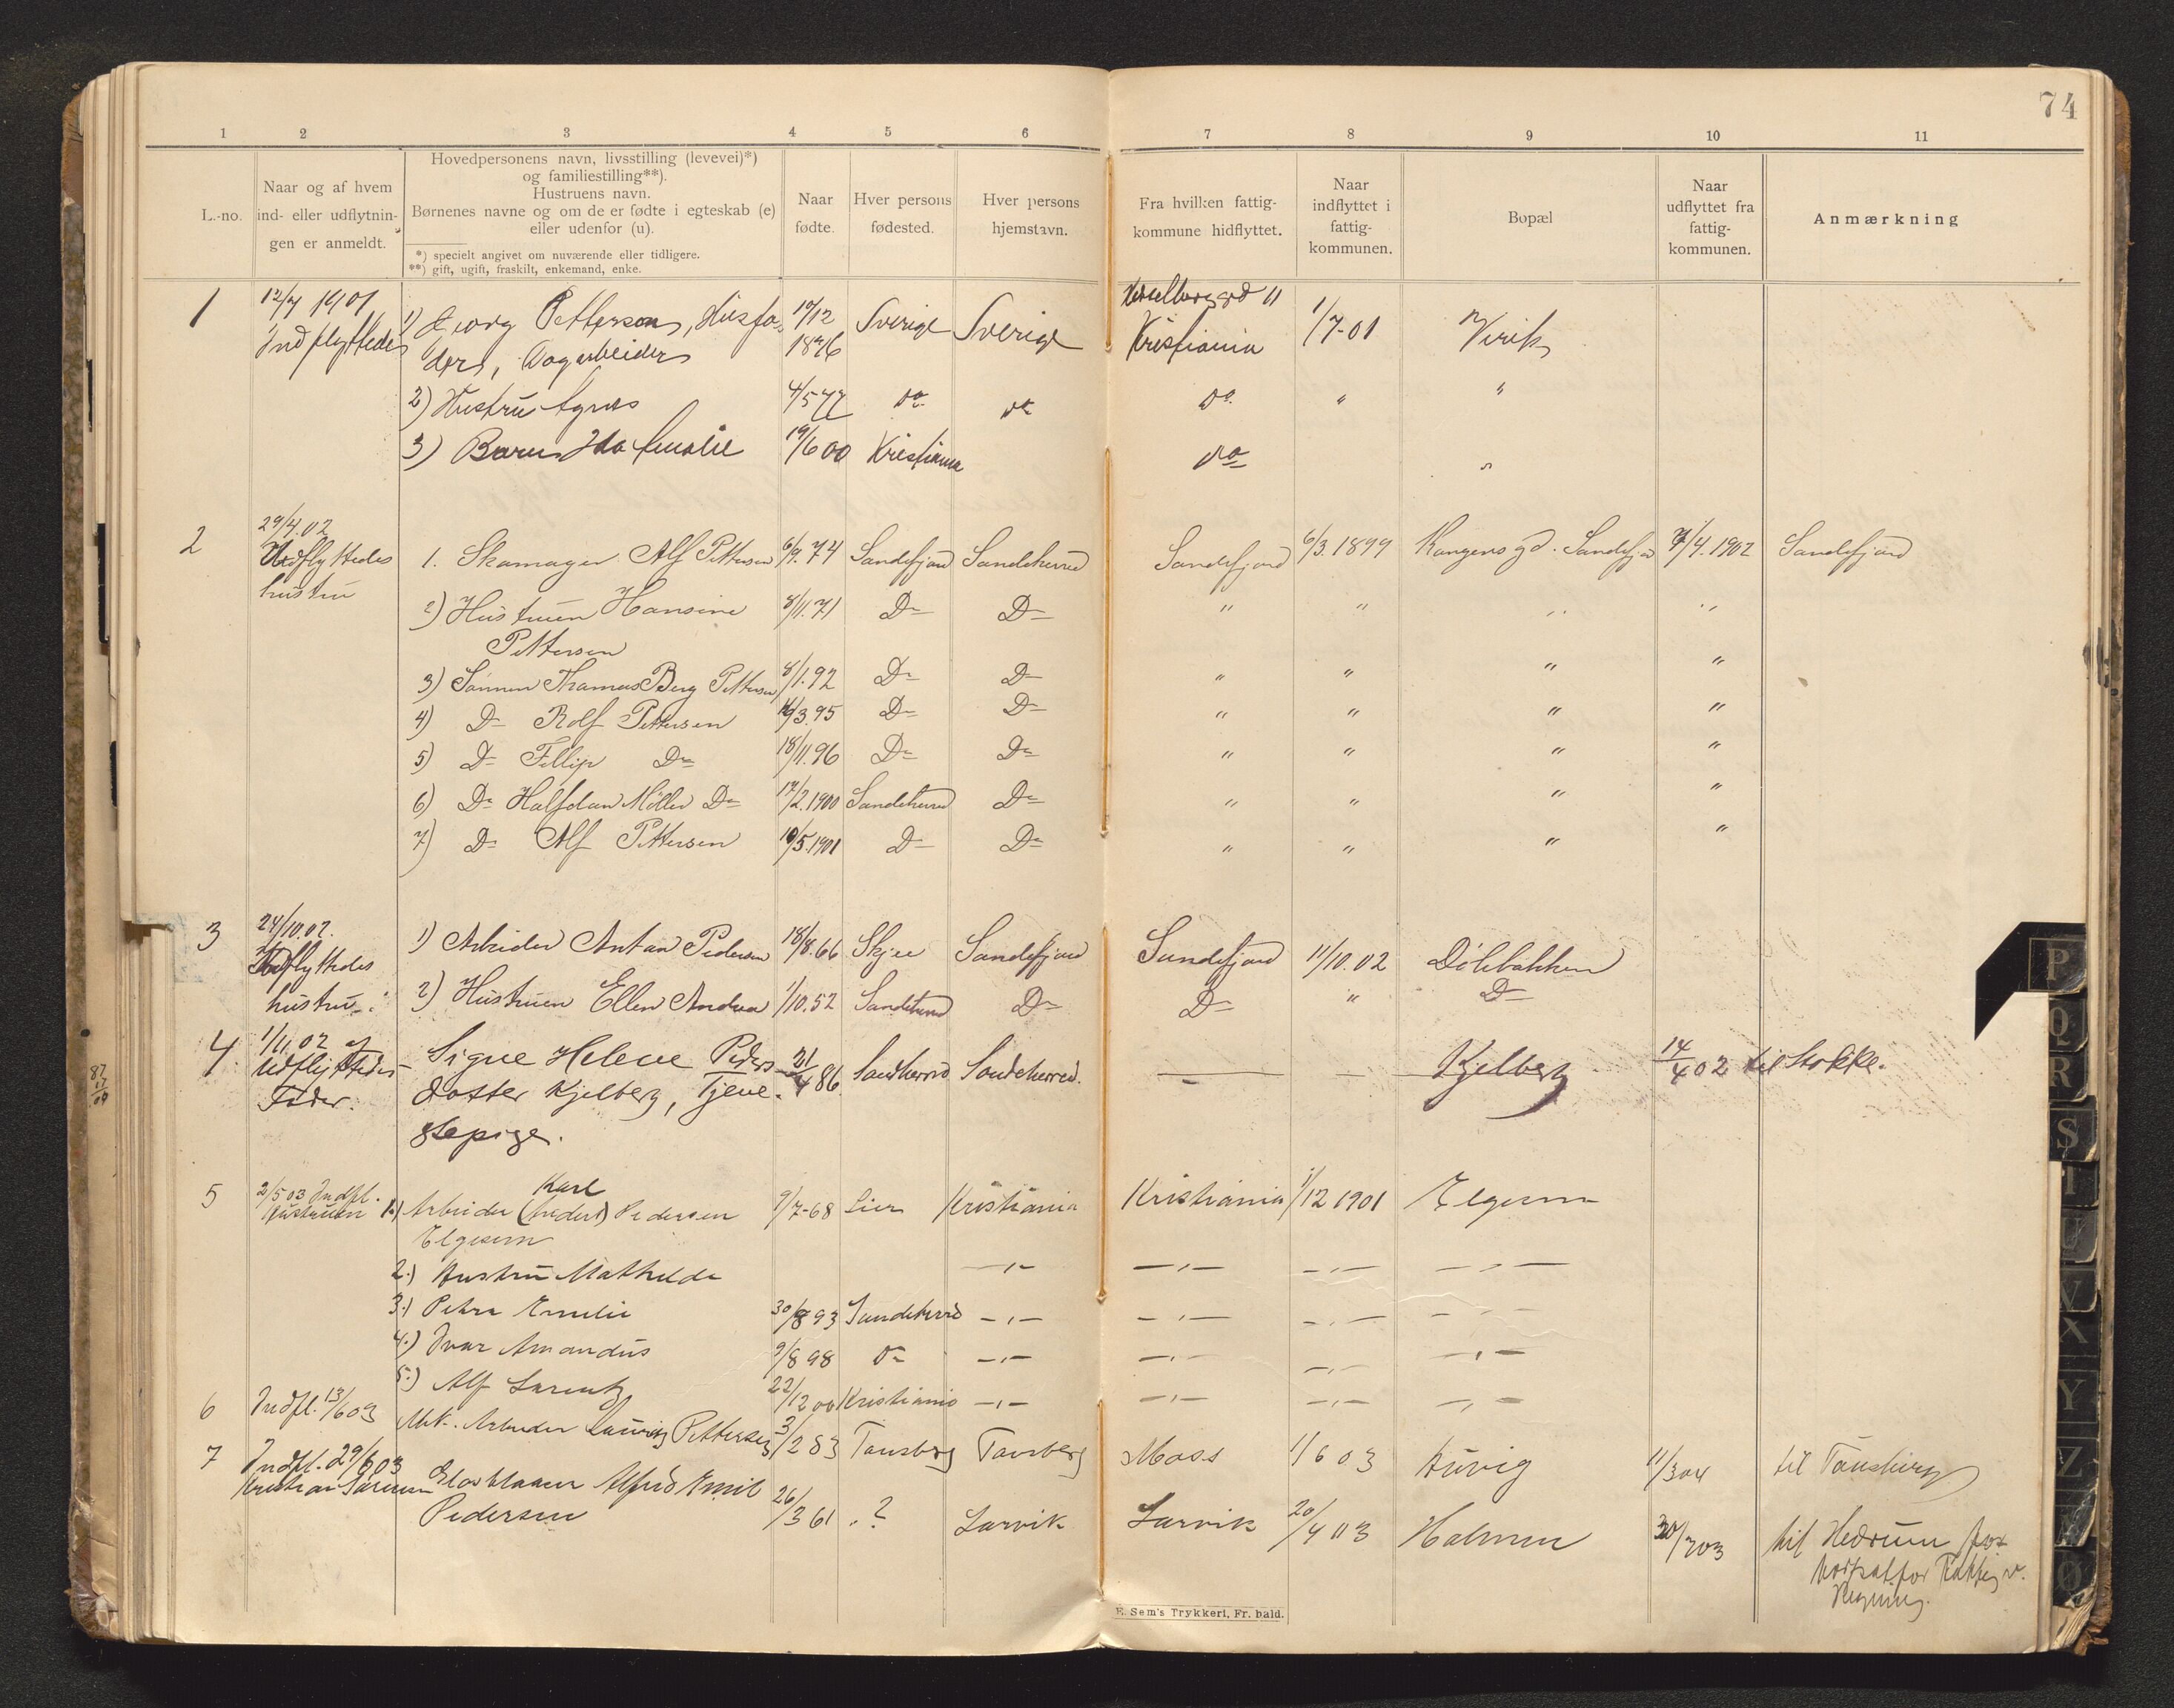 74
1 2 3 4 5 6 7 8 9 10 11
L.-no.
Naar og af hvem
ind- eller udflytnin-
gen er anmeldt.
Hovedpersonens navn, livsstilling (levevei)*)
og familiestilling**).
Hustruens navn.
Børnenes navne og om de er fødte i egteskab (e)
eller udenfor (u).
*) specielt angivet om nuværende eller tidligere.
**) gift, ugift, fraskilt, enkemand, enke.
Naar
fødte.
Hver persons
fødested.
Hver persons
hjemstavn.
Fra hvilken fattig-
kommune hidflyttet.
Naar
indflyttet i
fattig-
kommunen.
Bopæl
Naar
udflyttet fra
fattig-
kommunen.
Anmærkning
1 12/7 1901 1) Georg Petterson, Husfa- 17/12 Sverige Sverige 11 1/7-01 Virik
Indflyttedes der, Dagarbeider 1876 Kristiania
2) Hustru Agnes 4/5 77 do do do " "
3) Barn Ida Amalie 19/6 00 Kristiania do "
2 29/4.02
Udflyttedes 1. Skomager Alf Pettersen 6/9.74 Sandefjord Sandeherred Sandefjord 6/3.1899 Kongensgd. Sandefjord 7/4.1902 Sandefjord
hustru 2) Hustruen Hansine 8/11.71 D- D- " " " "
Pettersen
3) Sønnen Thomas Berg Pettersen 8/1.92 D- D- " " " "
4) D- Rolf Pettersen 16/3.95 D- D- " " " "
5) D- Fillip D- 18/11.96 D- D- " " " "
6) D- Halfdan Møller D- 17/2.1900 Sandeherred D- " " " "
7) D- Alf Pettersen 10/5.1901 D- D- " " " "
3 24/10.02. 1) Arbeider Anton Pedersen 18/8.66 Skjee Sandefjord Sandefjord 11/10.02 Dølebakken
Indflyttedes
hustru 2) Hustruen Ellen Andrea 1/10.52 Sandeherred D- D- " D-
4 1/11.02 af Signe Helene Peders- 21/4 86 Sandherred Sandeherred. — — Kjelberg 14/4 02 til Stokke.
Udflyttedes datter Kjelberg, Tjene-
Fader. stepige.
5 2/5 03 Indfl. Karl
Hustruen 1.) Arbeider (Anders) Pedersen 9/7-68 Lier Kristiania Kristiania 1/12 1901 Elgesem
Elgesem
2.) Hustru Mathilde —„— —„— —„— —„—
3.) Petra Emilie 30/8 93 Sandeherred —„— —„— —„— —„—
4.) Ivar Amandus 9/8 98 do —„— —„— —„— —„—
5.) Alf Lorentz 22/12 00 Kristiania —„— —„— —„— —„—
6 Indfl. 13/6 03 Mek. Arbeider Lauritz Pettersen 3/2 83 Tønsberg Tønsberg Moss 1/6 03 Huvig 11/3 04 til Tønsberg
7 Indfl. 29/6 03
Kristian Sørensen Glasblaaser Alfred Emil 26/3 61 ? Larvik Larvik 20/4 03 Holmen 30/7 03 til Hedrum
Pedersen
Regning.
E. Sem's Trykkeri, Fr. hald.
87
17
09
P
Q
R
S
T
U
V
X
Y
Z
Æ
Ø